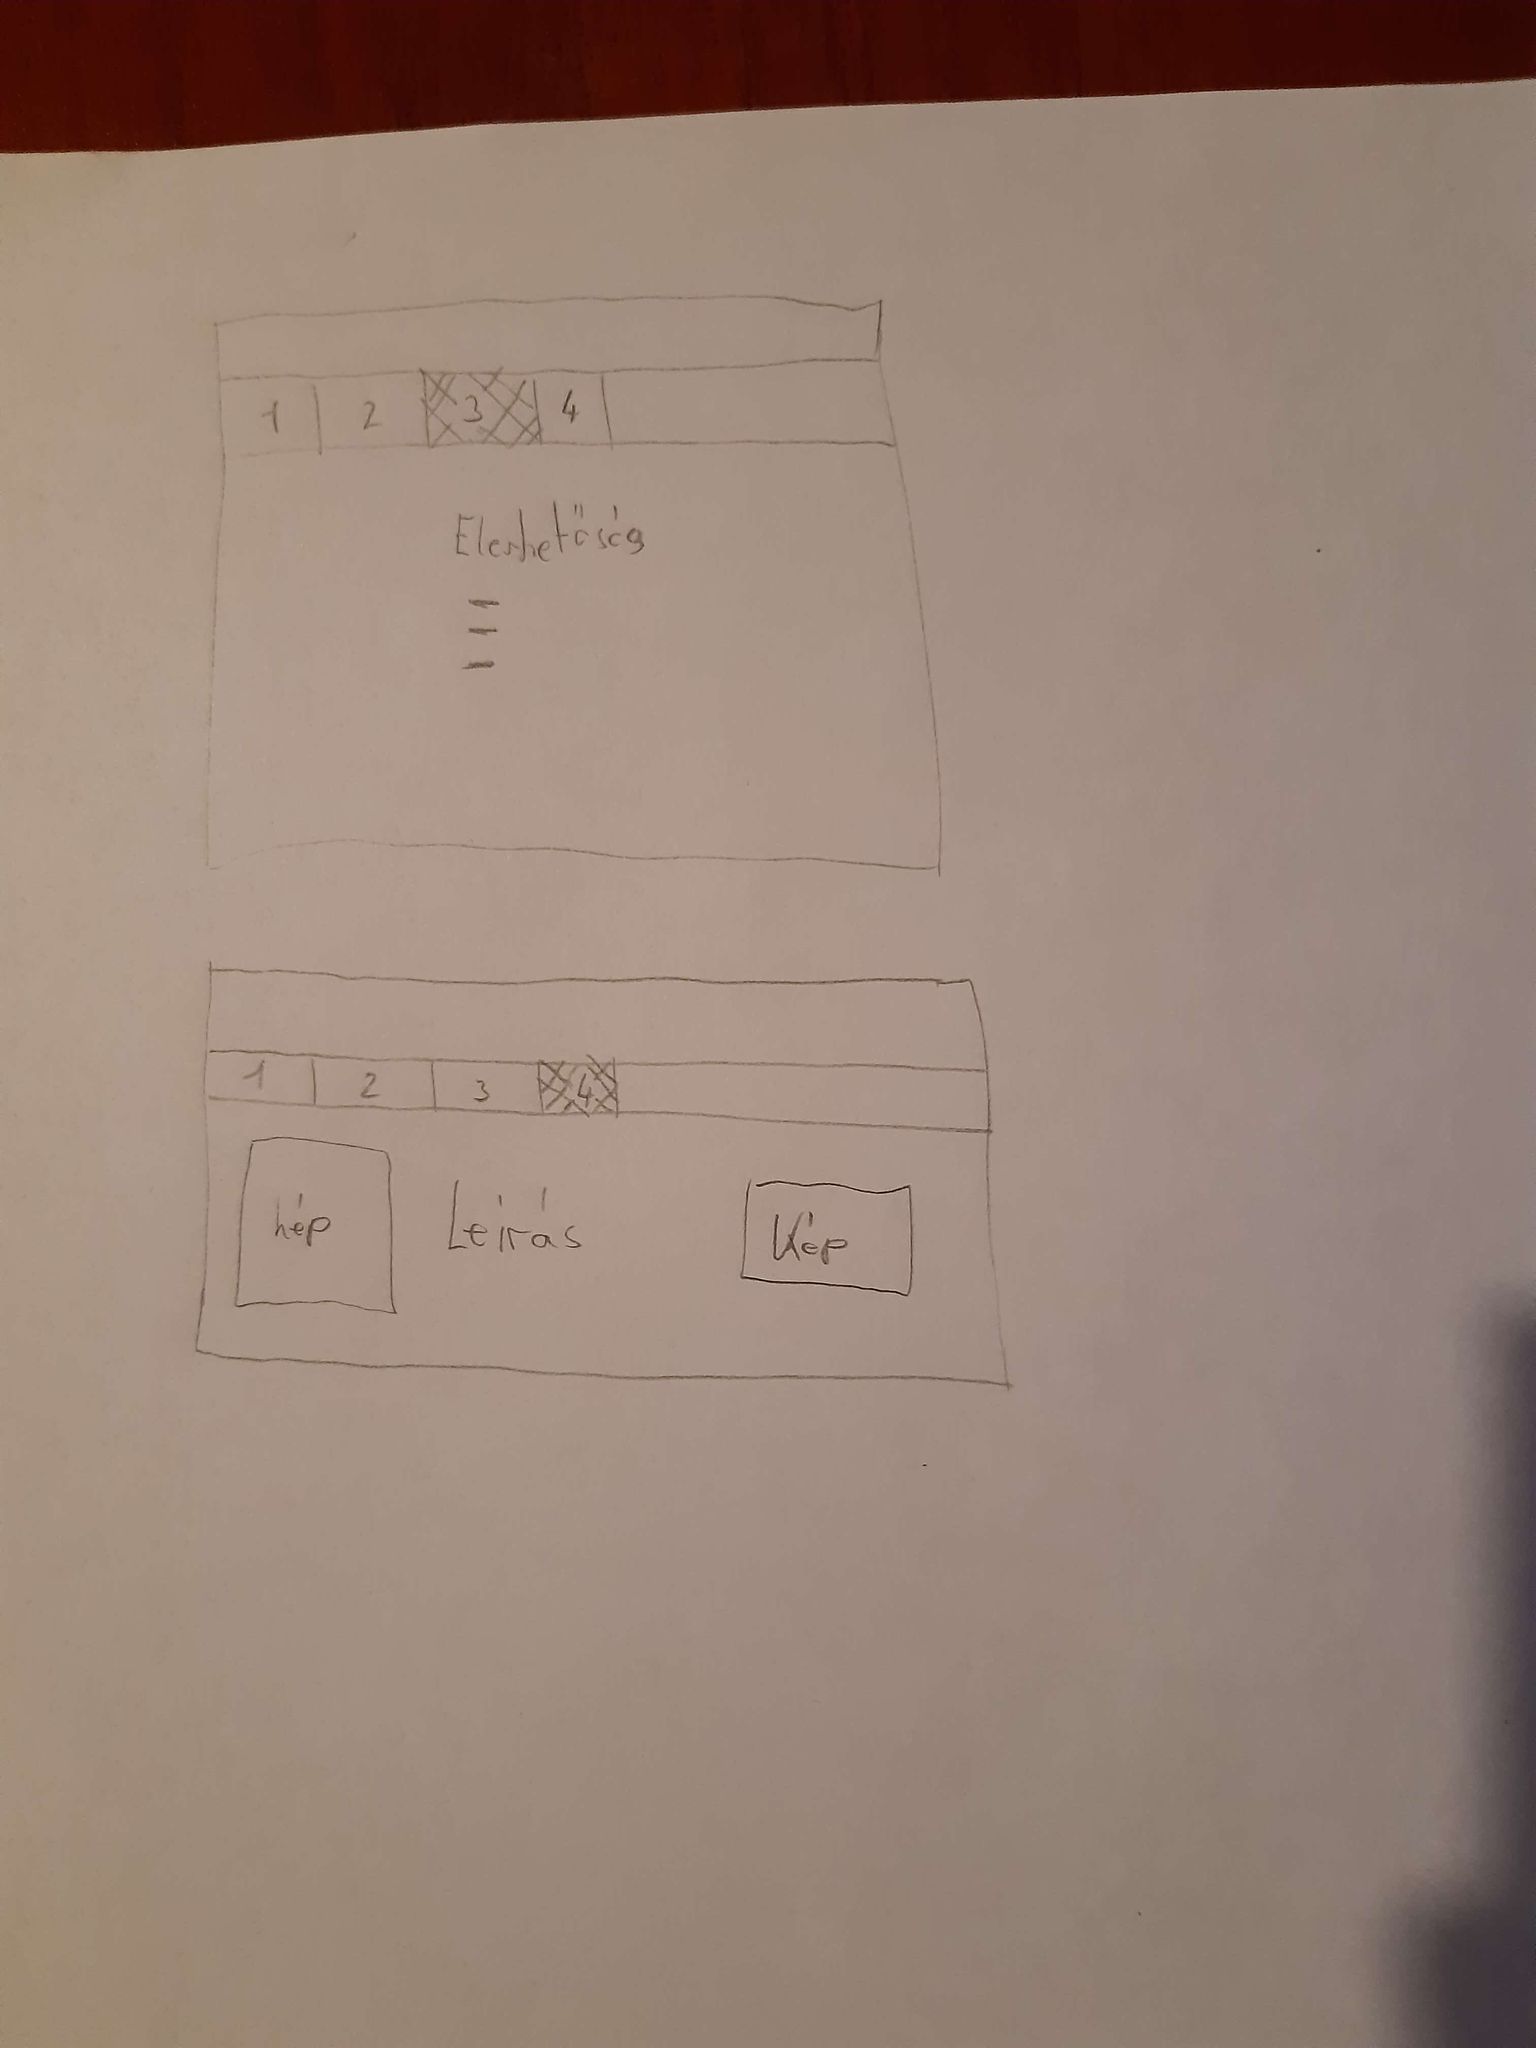 1 2 3 4
Elerhetőség
1 2 3 4
kép Leírás Kép